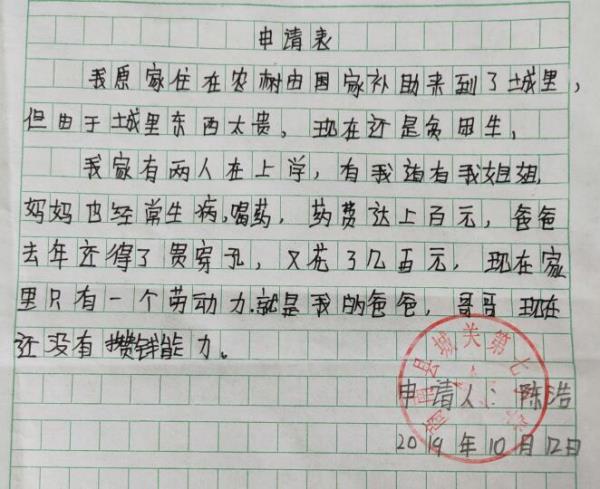 申请表
我原家住在农树由国家补助来到了城里，
但由于城里东西太贵，现在还是贫困生，
我家有两人在上学，有我还有我姐姐
妈妈也经常生病，喝药，药费达上百元，爸爸
去年还得了胃穿孔，又花了几百元，现在家
里只有一个劳动力.就是我的爸爸，哥哥现在
还没有攒钱能力。
县城关第七
申请人：陈浩
2019年10月12日